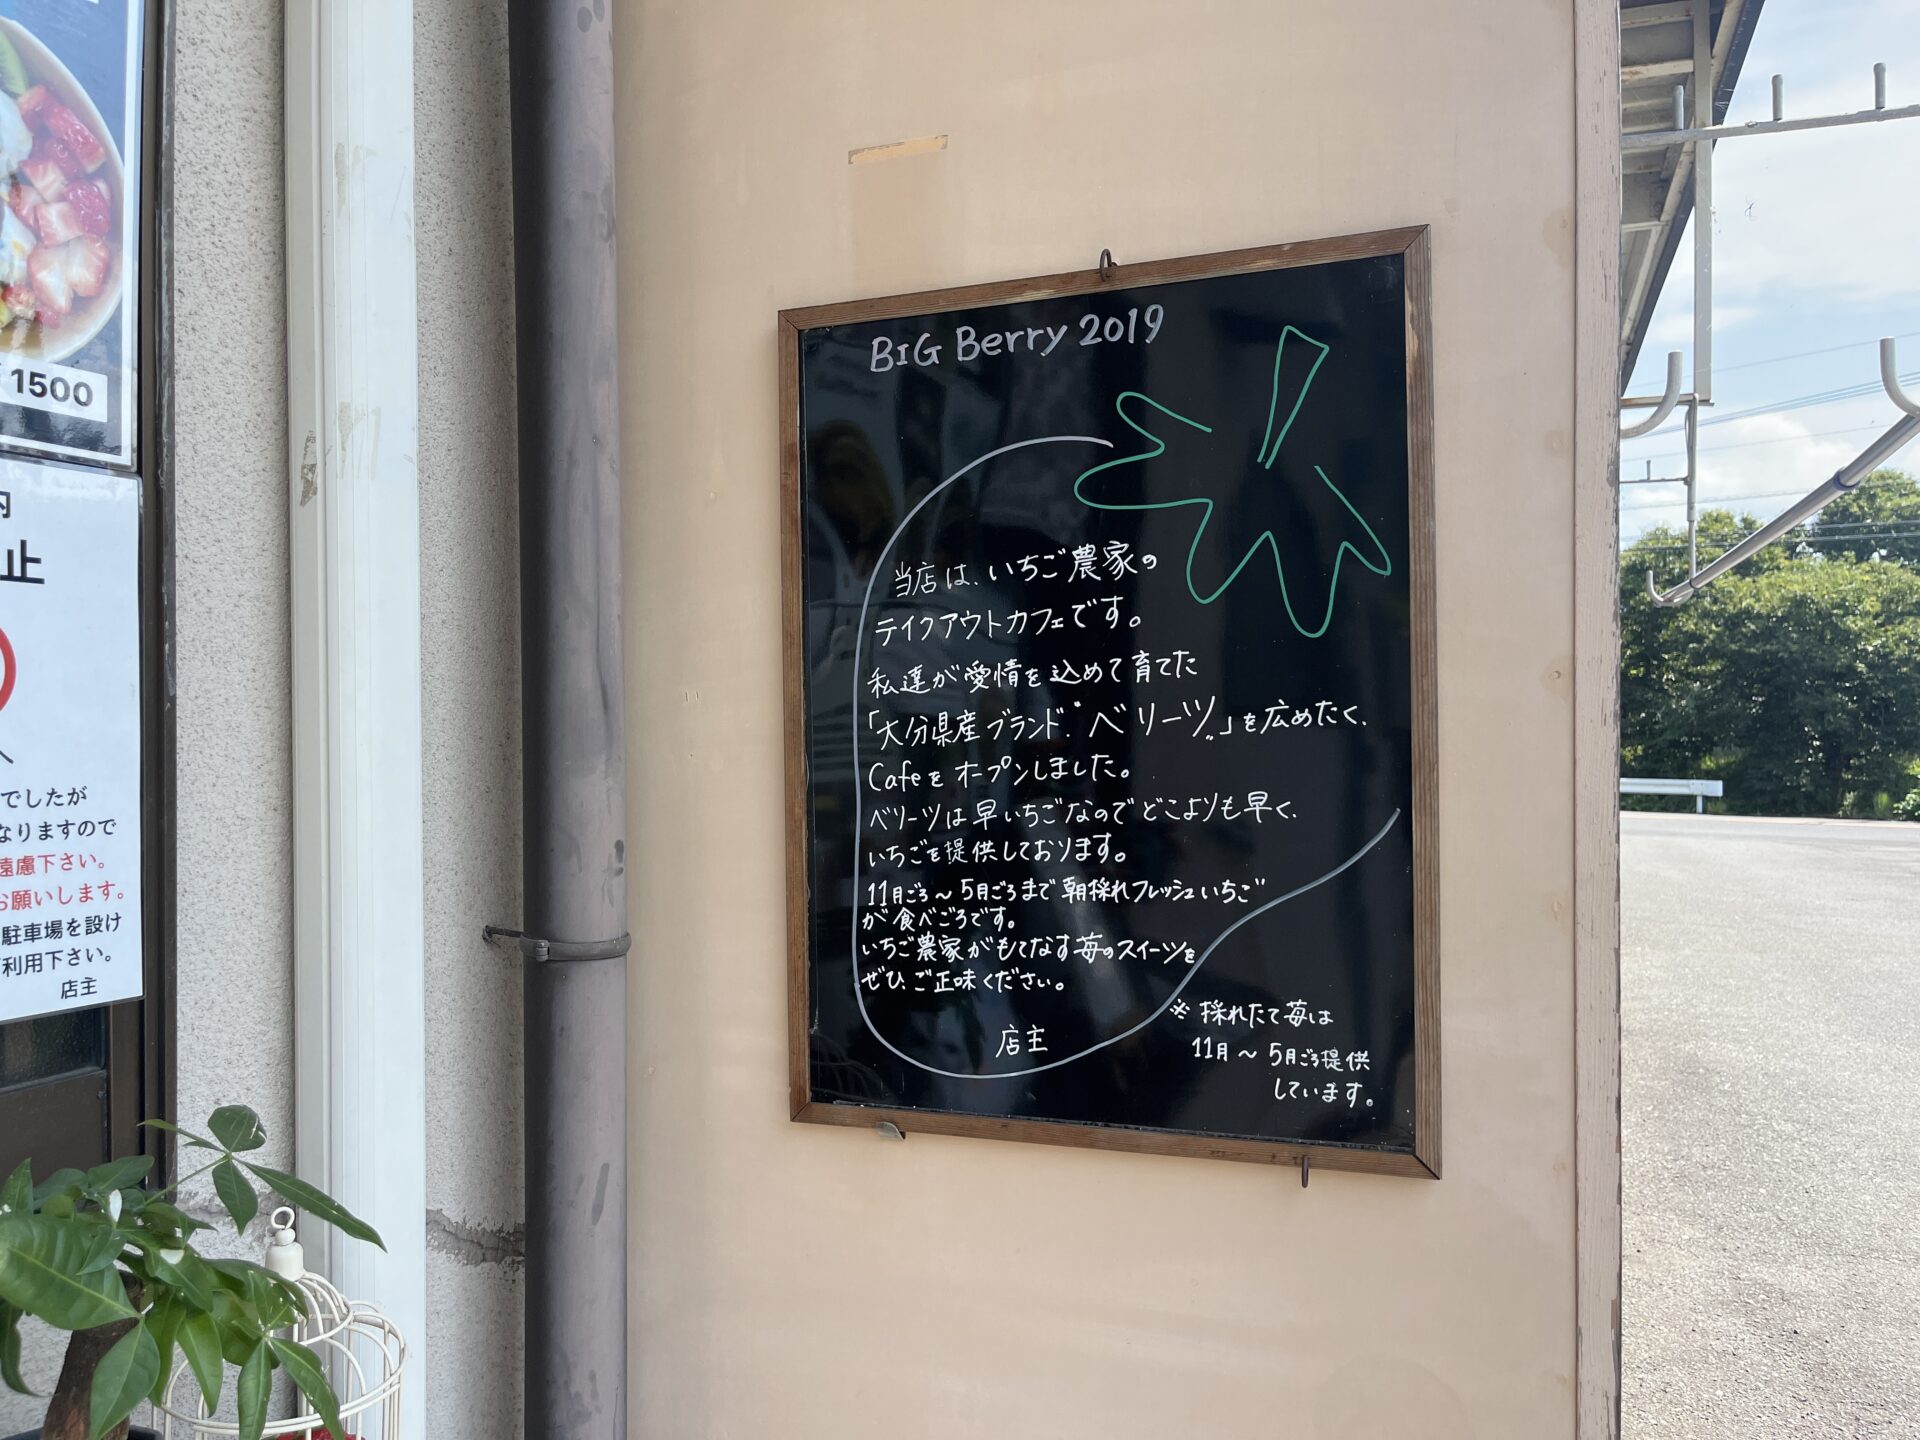 BIG Berry 2019
当店は、いちご農家の
テイクアウトカフェです。
私達が愛情を込めて育てた
「大分県産ブランド“ベリーツ”」を広めたく、
Cafeをオープンしました。
ベリーツは早いちごなのでどこよりも早く、
いちごを提供しております。
11月ごろ～5月ごろまで朝採れフレッシュいちご
が食べごろです。
いちご農家がもてなす苺のスイーツを
ぜひ、ご正味ください。
店主
※採れたて苺は
11月～5月ごろ提供
しています。
1500
内
止
でしたが
なりますので
遠慮下さい。
お願いします。
駐車場を設け
利用下さい。
店主